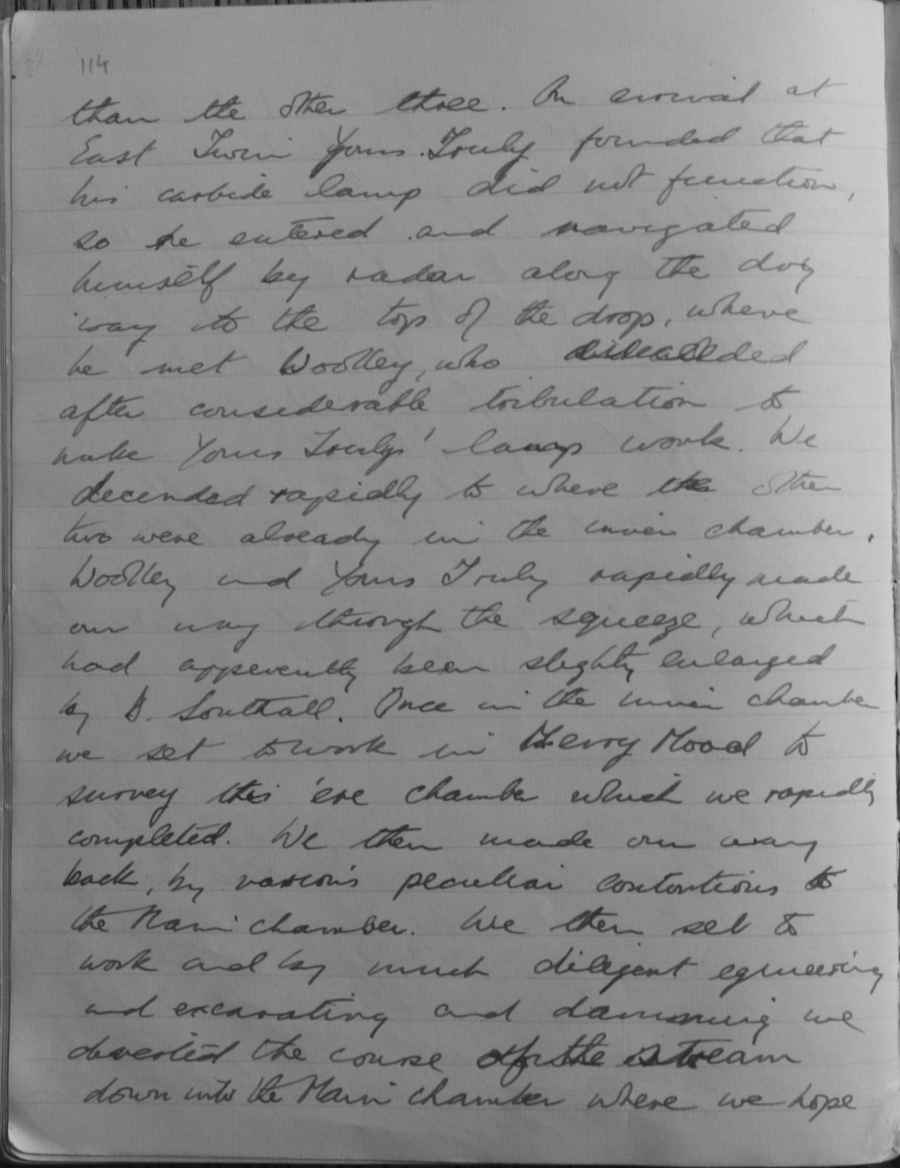 114
than the other three. On arrival at
East Twin Yours Truly founded that
his carbide lamp did not function,
so he entered and navigated
himself by radar along the dry
way to the top of the drop, where
he met Woolley, who
after considerable tribulation to
make Yours Trulys' lamp work. We
decended rapidly to where the other
two were already in the inner chamber.
Woolley and Yours Truly rapidly made
our way through the squeeze, which
had apperently been slightly enlarged
by D. Southall. Once in the inner chamber
we set to work in Merry Mood to
survey this 'ere chamber which we rapidly
completed. We then made our way
back, by various peculiar contortions to
the Main chamber. We then set to
work and by much diligent egineering
and excavating and damming we
deverted the course of the stream
down into the Main chamber where we hope